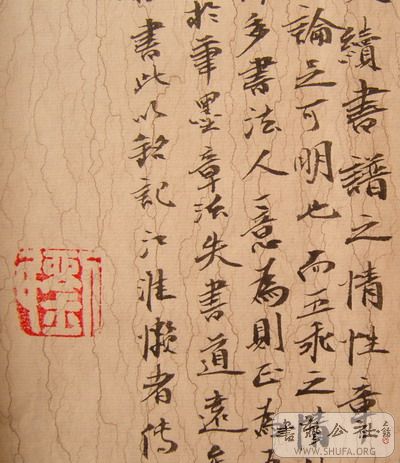 續書譜之情性重
論之可明也而五乖之
多書法人意為則正為
於筆墨章法失書道遠
書此以銘記江淮懶者傳
書藝公社
WWW.SHUFA.ORG